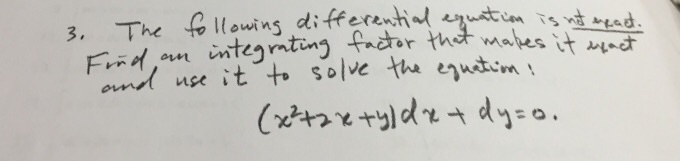 3. The following differential equation is not exact.
Find an integrating factor that makes it exact
and use it to solve the equation:
(x²+2x+y)dx + dy=0.